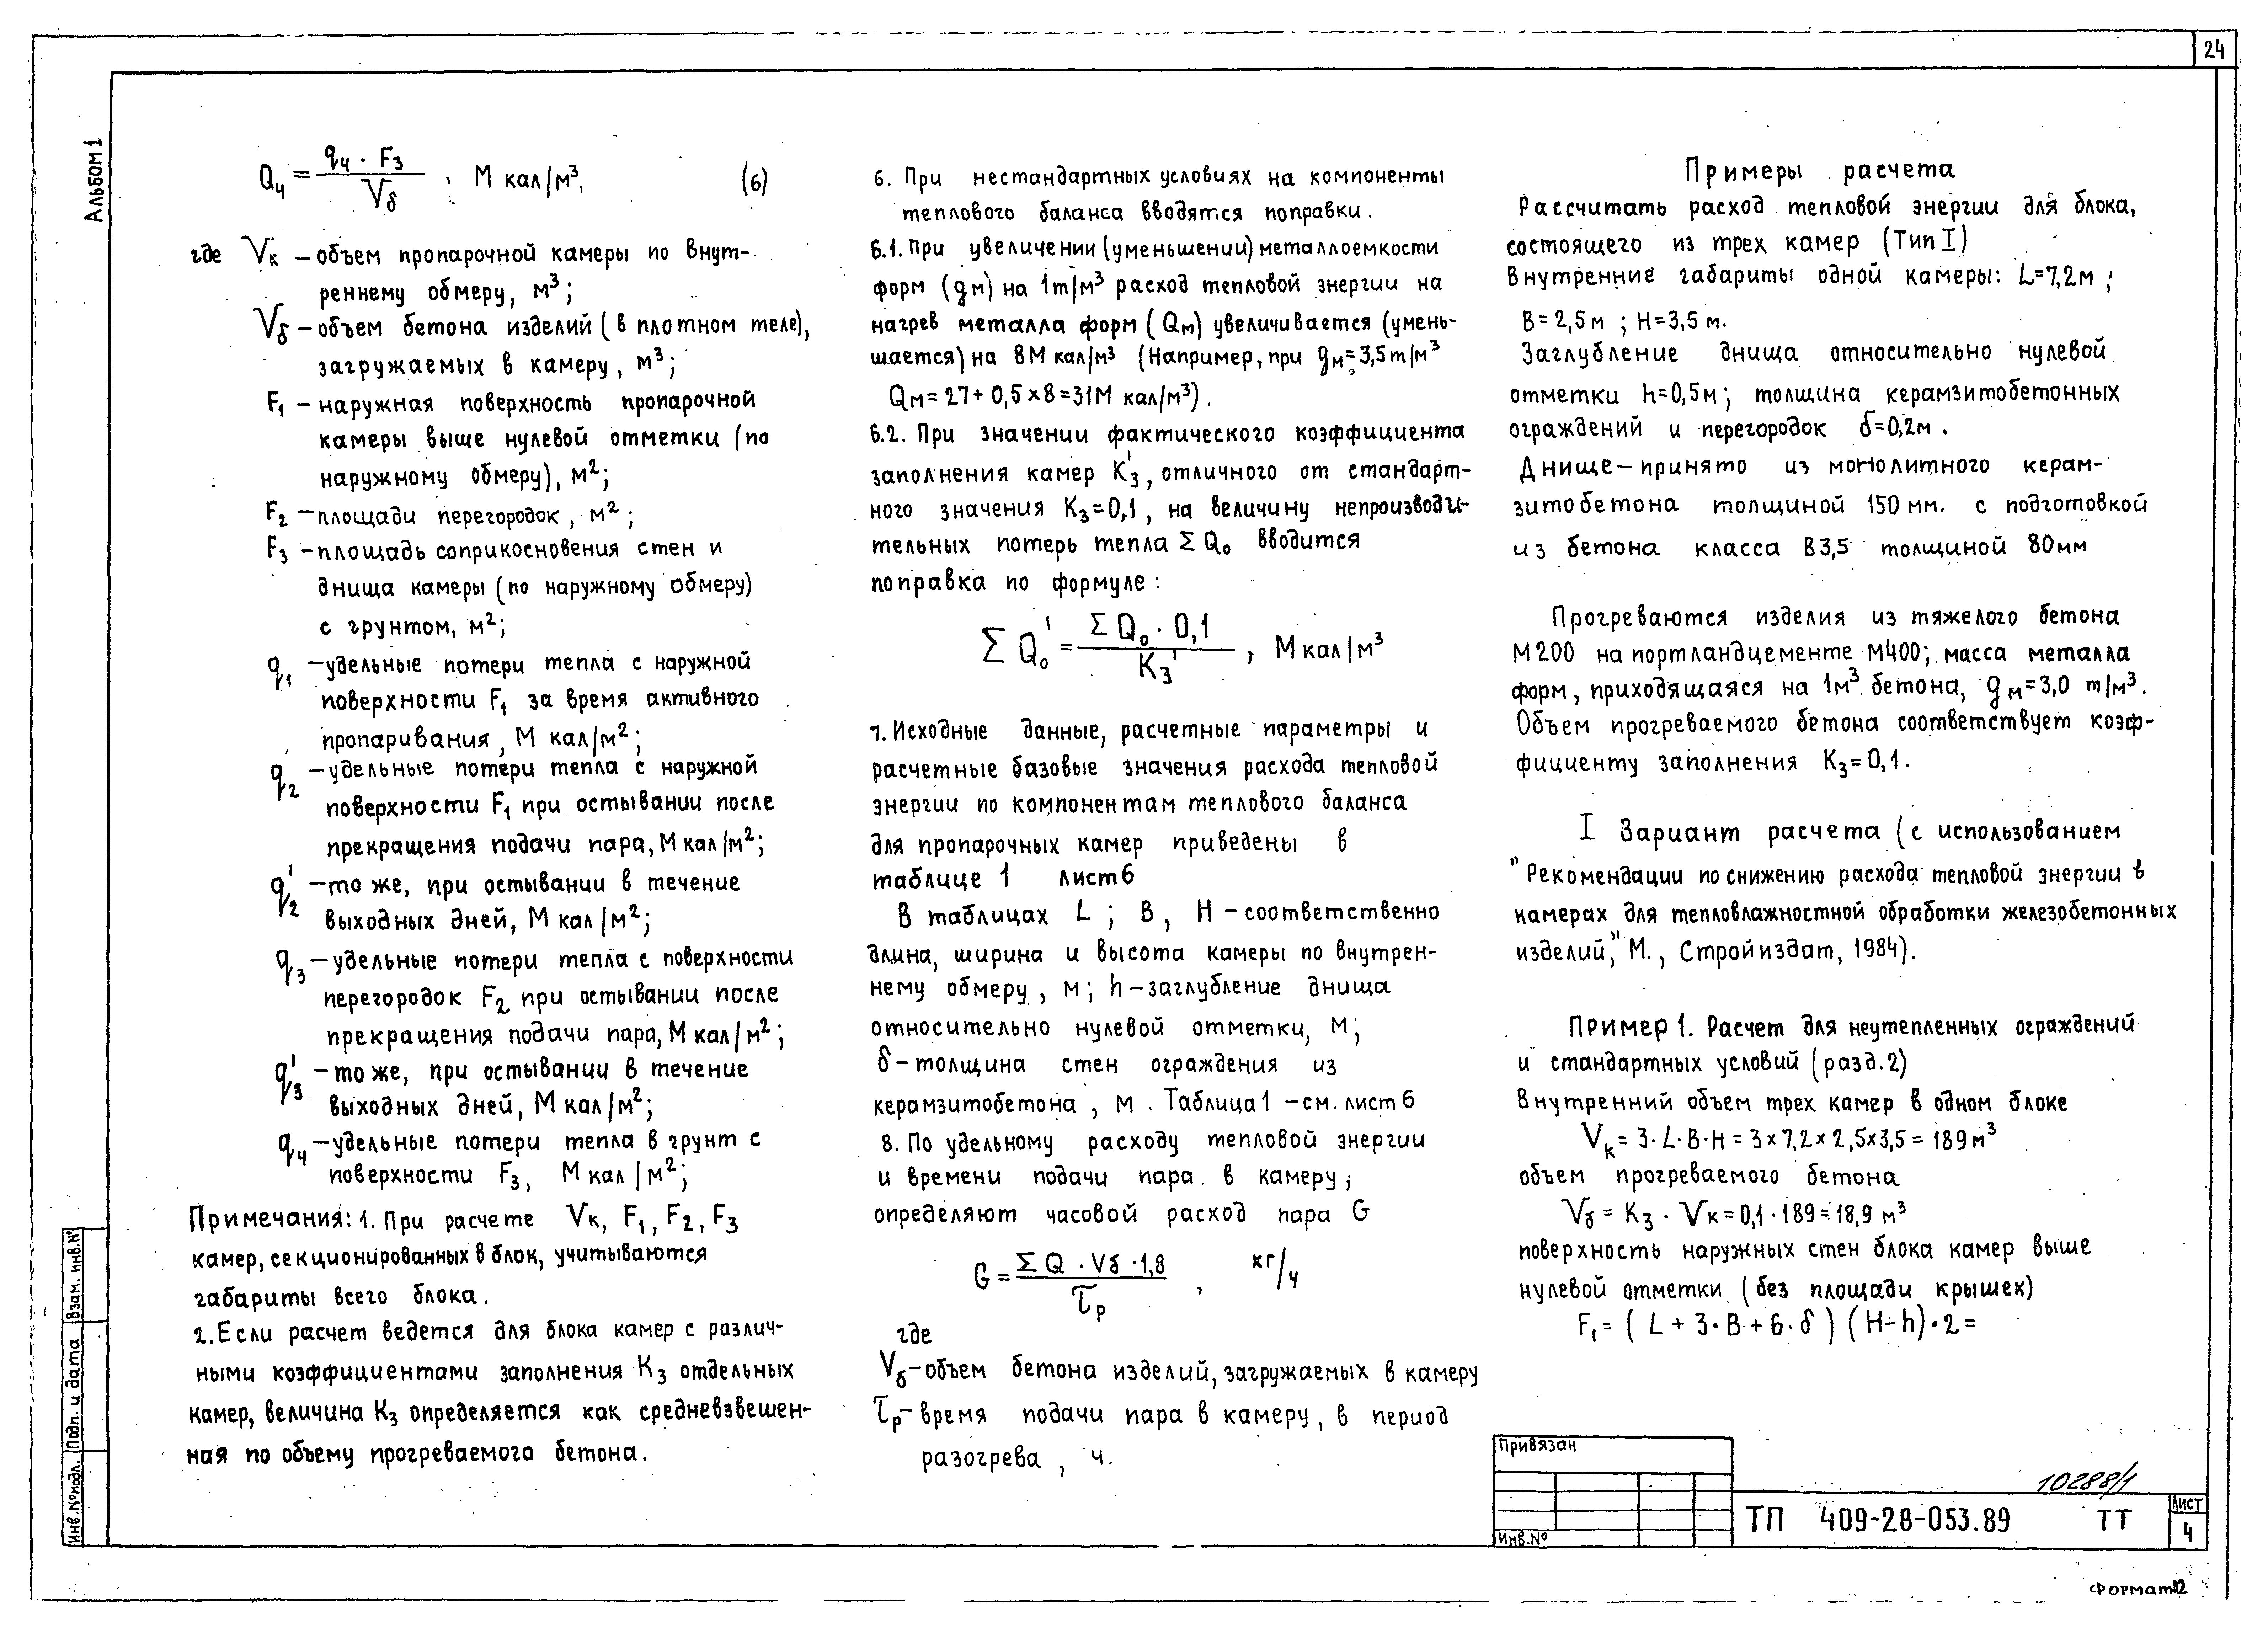 24
Альбом 1
Q₄ = q₄ · F₃ / Vб , Мкал/м³, (6)
где Vк – объем пропарочной камеры по внут-
реннему обмеру, м³;
Vб – объем бетона изделий (в плотном теле),
загружаемых в камеру, м³;
F₁ – наружная поверхность пропарочной
камеры выше нулевой отметки (по
наружному обмеру), м²;
F₂ – площади перегородок, м²;
F₃ – площадь соприкосновения стен и
днища камеры (по наружному обмеру)
с грунтом, м²;
q₁ – удельные потери тепла с наружной
поверхности F₁ за время активного
пропаривания, Мкал/м²;
q₂ – удельные потери тепла с наружной
поверхности F₁ при остывании после
прекращения подачи пара, Мкал/м²;
q₂' – то же, при остывании в течение
выходных дней, Мкал/м²;
q₃ – удельные потери тепла с поверхности
перегородок F₂ при остывании после
прекращения подачи пара, Мкал/м²;
q₃' – то же, при остывании в течение
выходных дней, Мкал/м²;
q₄ – удельные потери тепла в грунт с
поверхности F₃, Мкал/м²;
Примечания: 1. При расчете Vк, F₁, F₂, F₃
камер, секционированных в блок, учитываются
габариты всего блока.
2. Если расчет ведется для блока камер с различ-
ными коэффициентами заполнения K₃ отдельных
камер, величина K₃ определяется как средневзвешен-
ная по объему прогреваемого бетона.
6. При нестандартных условиях на компоненты
теплового баланса вводятся поправки.
6.1. При увеличении (уменьшении) металлоемкости
форм (gм) на 1т/м³ расход тепловой энергии на
нагрев металла форм (Qм) увеличивается (умень-
шается) на 8Мкал/м³ (Например, при gм=3,5т/м³
Qм=27+0,5×8=31Мкал/м³).
6.2. При значении фактического коэффициента
заполнения камер K₃', отличного от стандарт-
ного значения K₃=0,1, на величину непроизводи-
тельных потерь тепла ΣQ₀ вводится
поправка по формуле:
ΣQ₀' = ΣQ₀ · 0,1 / K₃' , Мкал/м³
7. Исходные данные, расчетные параметры и
расчетные базовые значения расхода тепловой
энергии по компонентам теплового баланса
для пропарочных камер приведены в
таблице 1 лист 6
В таблицах L; B, H – соответственно
длина, ширина и высота камеры по внутрен-
нему обмеру, м; h – заглубление днища
относительно нулевой отметки, м;
δ – толщина стен ограждения из
керамзитобетона, м. Таблица 1 – см. лист 6
8. По удельному расходу тепловой энергии
и времени подачи пара в камеру;
определяют часовой расход пара G
G = ΣQ · Vб · 1,8 / τр , кг/ч
где
Vб – объем бетона изделий, загружаемых в камеру
τр – время подачи пара в камеру, в период
разогрева, ч.
Примеры расчета
Рассчитать расход тепловой энергии для блока,
состоящего из трех камер (Тип I)
Внутренние габариты одной камеры: L=7,2м;
B=2,5м; H=3,5м.
Заглубление днища относительно нулевой
отметки h=0,5м; толщина керамзитобетонных
ограждений и перегородок δ=0,2м.
Днище – принято из монолитного керам-
зитобетона толщиной 150мм. с подготовкой
из бетона класса В3,5 толщиной 80мм
Прогреваются изделия из тяжелого бетона
М200 на портландцементе М400; масса металла
форм, приходящаяся на 1м³ бетона, gм=3,0 т/м³.
Объем прогреваемого бетона соответствует коэф-
фициенту заполнения K₃=0,1.
I Вариант расчета (с использованием
"Рекомендации по снижению расхода тепловой энергии в
камерах для тепловлажностной обработки железобетонных
изделий," М., Стройиздат, 1984).
Пример 1. Расчет для неутепленных ограждений
и стандартных условий (разд.2)
Внутренний объем трех камер в одном блоке
Vк = 3·L·B·H = 3×7,2×2,5×3,5 = 189м³
объем прогреваемого бетона
Vб = K₃ · Vк = 0,1·189 = 18,9 м³
поверхность наружных стен блока камер выше
нулевой отметки (без площади крышек)
F₁ = (L + 3·B + 6·δ) (H – h)·2 =
Привязан
Инв.№
10288/1
ТП 409-28-053.89 ТТ
Лист
4
Формат 12
Взам. инв.№
Подп. и дата
Инв.№подл.